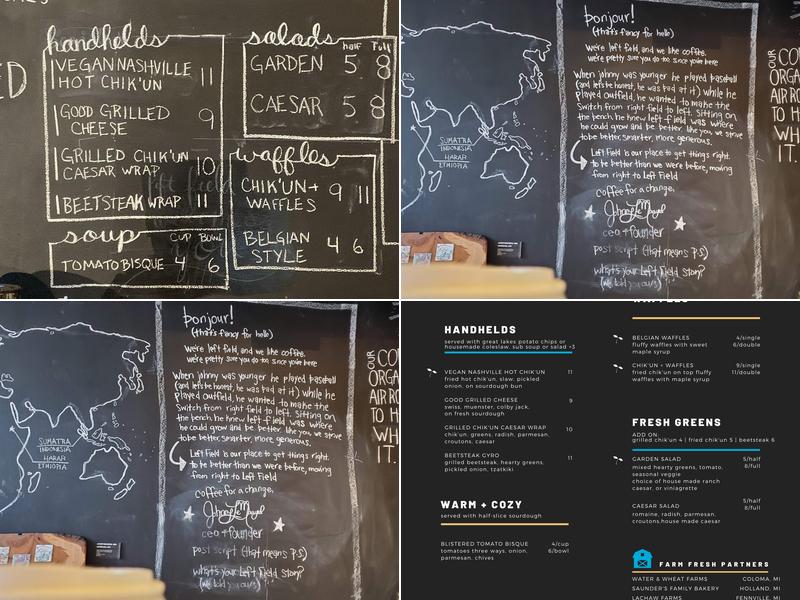 ED
handhelds
VEGAN NASHVILLE
HOT CHIK'UN 11
GOOD GRILLED
CHEESE 9
GRILLED CHIK'UN
CAESAR WRAP 10
BEETSTEAK WRAP 11
soup CUP BOWL
TOMATO BISQUE 4 6
salads half Full
GARDEN 5 8
CAESAR 5 8
waffles
CHIK'UN +
WAFFLES 9 11
BELGIAN
STYLE 4 6
SUMATRA
INDONESIA
HARAR
ETHIOPIA
bonjour!
(that's fancy for hello)
We're left field, and we like coffee.
We're pretty sure you do too since you're here
When johnny was younger he played baseball
(and let's be honest, he was bad at it) while he
played outfield, he wanted to make the
switch from right field to left. Sitting on
the bench, he knew left field was where
he could grow and be better. like you, we strive
to be better, smarter, more generous.
Left Field is our place to get things right.
to be better than we were before, moving
from right to Left Field
coffee for a change,
ceo + founder
post script (that means p.s)
what's your Left Field story?
(we told you ours)
OUR
CO
ORGA
AIR RO
TO H
WH
IT.
SUMATRA
INDONESIA
HARAR
ETHIOPIA
bonjour!
(that's fancy for hello)
We're left field, and we like coffee.
We're pretty sure you do too since you're here
When johnny was younger he played baseball
(and let's be honest, he was bad at it) while he
played outfield, he wanted to make the
switch from right field to left. Sitting on
the bench, he knew left field was where
he could grow and be better. like you, we strive
to be better, smarter, more generous.
Left Field is our place to get things right.
to be better than we were before, moving
from right to Left Field
coffee for a change,
ceo + founder
post script (that means p.s)
what's your Left Field story?
(we told you ours)
OUR
CO
ORGA
AIR RO
TO H
WH
IT.
HANDHELDS
served with great lakes potato chips or
housemade coleslaw. sub soup or salad +3
VEGAN NASHVILLE HOT CHIK'UN 11
fried hot chik'un, slaw, pickled
onion, on sourdough bun
GOOD GRILLED CHEESE 9
swiss, muenster, colby jack,
on fresh sourdough
GRILLED CHIK'UN CAESAR WRAP 10
chik'un, greens, radish, parmesan,
croutons, caesar
BEETSTEAK GYRO 11
grilled beetsteak, hearty greens,
pickled onion, tzatkiki
WARM + COZY
served with half-slice sourdough
BLISTERED TOMATO BISQUE 4/cup
tomatoes three ways, onion, 6/bowl
parmesan, chives
WAFFLES
BELGIAN WAFFLES 4/single
fluffy waffles with sweet 6/double
maple syrup
CHIK'UN + WAFFLES 9/single
fried chik'un on top fluffy 11/double
waffles with maple syrup
FRESH GREENS
ADD ON
grilled chik'un 4 | fried chik'un 5 | beetsteak 6
GARDEN SALAD 5/half
mixed hearty greens, tomato, 8/full
seasonal veggie
choice of house made ranch
caesar, or viniagrette
5/half
CAESAR SALAD 8/full
romaine, radish, parmesan,
croutons,house made caesar
FARM FRESH PARTNERS
WATER & WHEAT FARMS COLOMA, MI
SAUNDER'S FAMILY BAKERY HOLLAND, MI
LACHAW FARMS FENNVILLE, MI